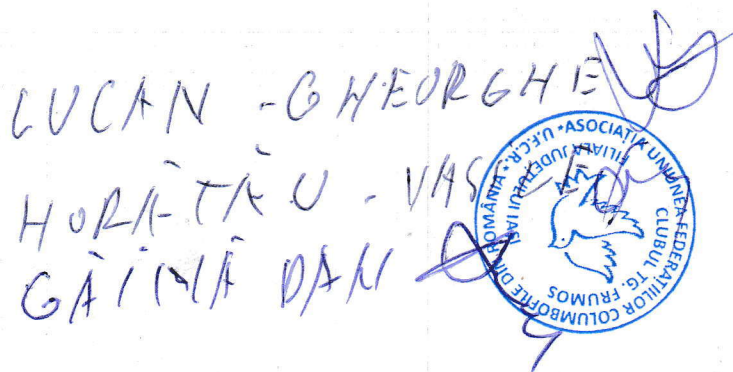 LUCAN - GHEORGHE
HORĂTĂU - VASILE
GĂINĂ DAN
ASOCIAȚIA UNIUNEA FEDERAȚIILOR COLUMBOFILE DIN ROMÂNIA * U.F.C.R. *
FILIALA JUDEȚULUI IAȘI
CLUBUL TG. FRUMOS